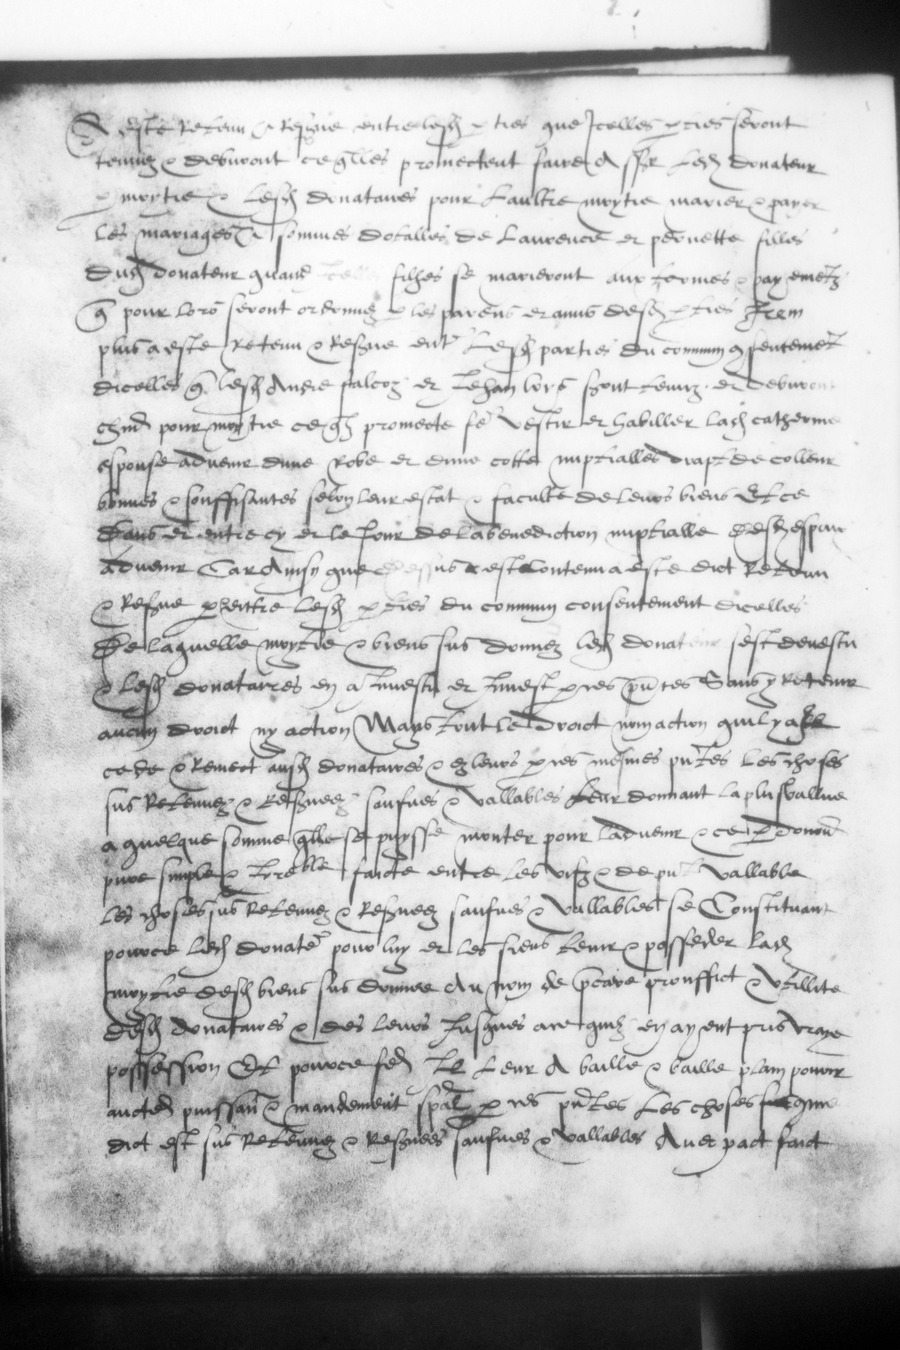 A este retenu & reserve entre lesd parties que Icelles parties seront
tenuez & debvront ce quelles promectent faire A sscr led donateur
p moytie & lesd donataires pour laultre moytie marier & payer
les mariages & sommes dotalles de Laurence et pernette filles
dud donateur quand filhes se marieront aux termes & payementz
q pour lors seront ordonnez p les parens et amis desd parties Item
plus a este retenu & reserve entre lesd parties du commun consentement
dicelles q lesd Andre falcoz et Jehan seront tenuz et debvront
chun pour moytie ce qlz promecte fe vestir et habiller lad catherine
espouse advenir dune robe et dune cotte nuptialles drapt de colleur
bonnes & souffisantes selon leur estat & faculte de leurs biens Et ce
dans et entre cy et le Jour de la benediction nuptialle desd espoux
advenir Car Ainsy que dessus est contenu a este dict retenu
& reserve p lesd parties du commun consentement dicelles
De laquelle moytie & biens sus donnez led donateur sest devestu
& lesd donataires en a Investu et Invest p ces pntes Sans y retenir
aucun droict ny action Mays tout le droict nom action quil y a
cede & remect ausd donataires & es leurs p ces mesmes pntes Les choses
sus retenuez & reservees saulves & vallables leur donnant la plus vallue
a quelque somme quelle se puysse monter pour ladvenir & ce p donaon
pure simple & Irrevble faicte entre les vifz & de pnt vallable
les choses sus retenuez & reservees saulves & vallables se Constituant
pource led donater pour luy et les siens tenir & posseder lad
moytie desd biens sus donnee Au nom de precaire prouffict & utillite
desd donataires & des leurs Jusques atant quilz en ayent pris vraye
possession Et pource fe Il leur A baille & baille plain pouoir
aucte puissan & mandement spal p ces pntes Les choses comme
dict est sus retenuez & reservees saulves & vallables Avec pact faict